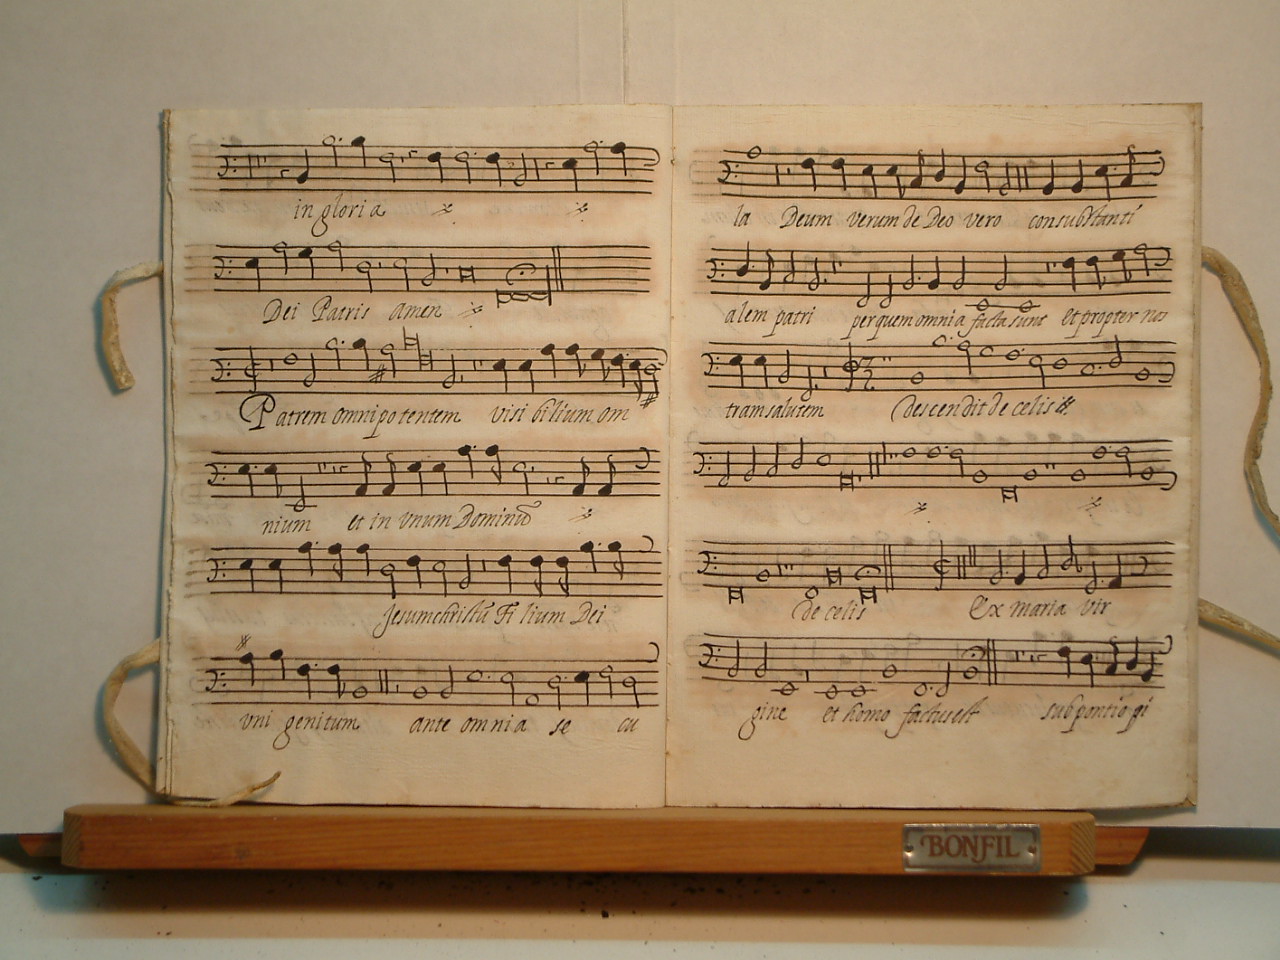 in gloria
Dei Patris amen
Patrem omnipotentem visi bilium om
nium et in vnum Dominũ
Jesumchristũ Fi lium Dei
vni genitum ante omnia se cu
la Deum verum de Deo vero consubstanti
alem patri per quem omnia facta sunt et propter nos
tram salutem Descendit de celis
de celis Ex maria vir
gine et homo factus est sub pontio pi
BONFIL